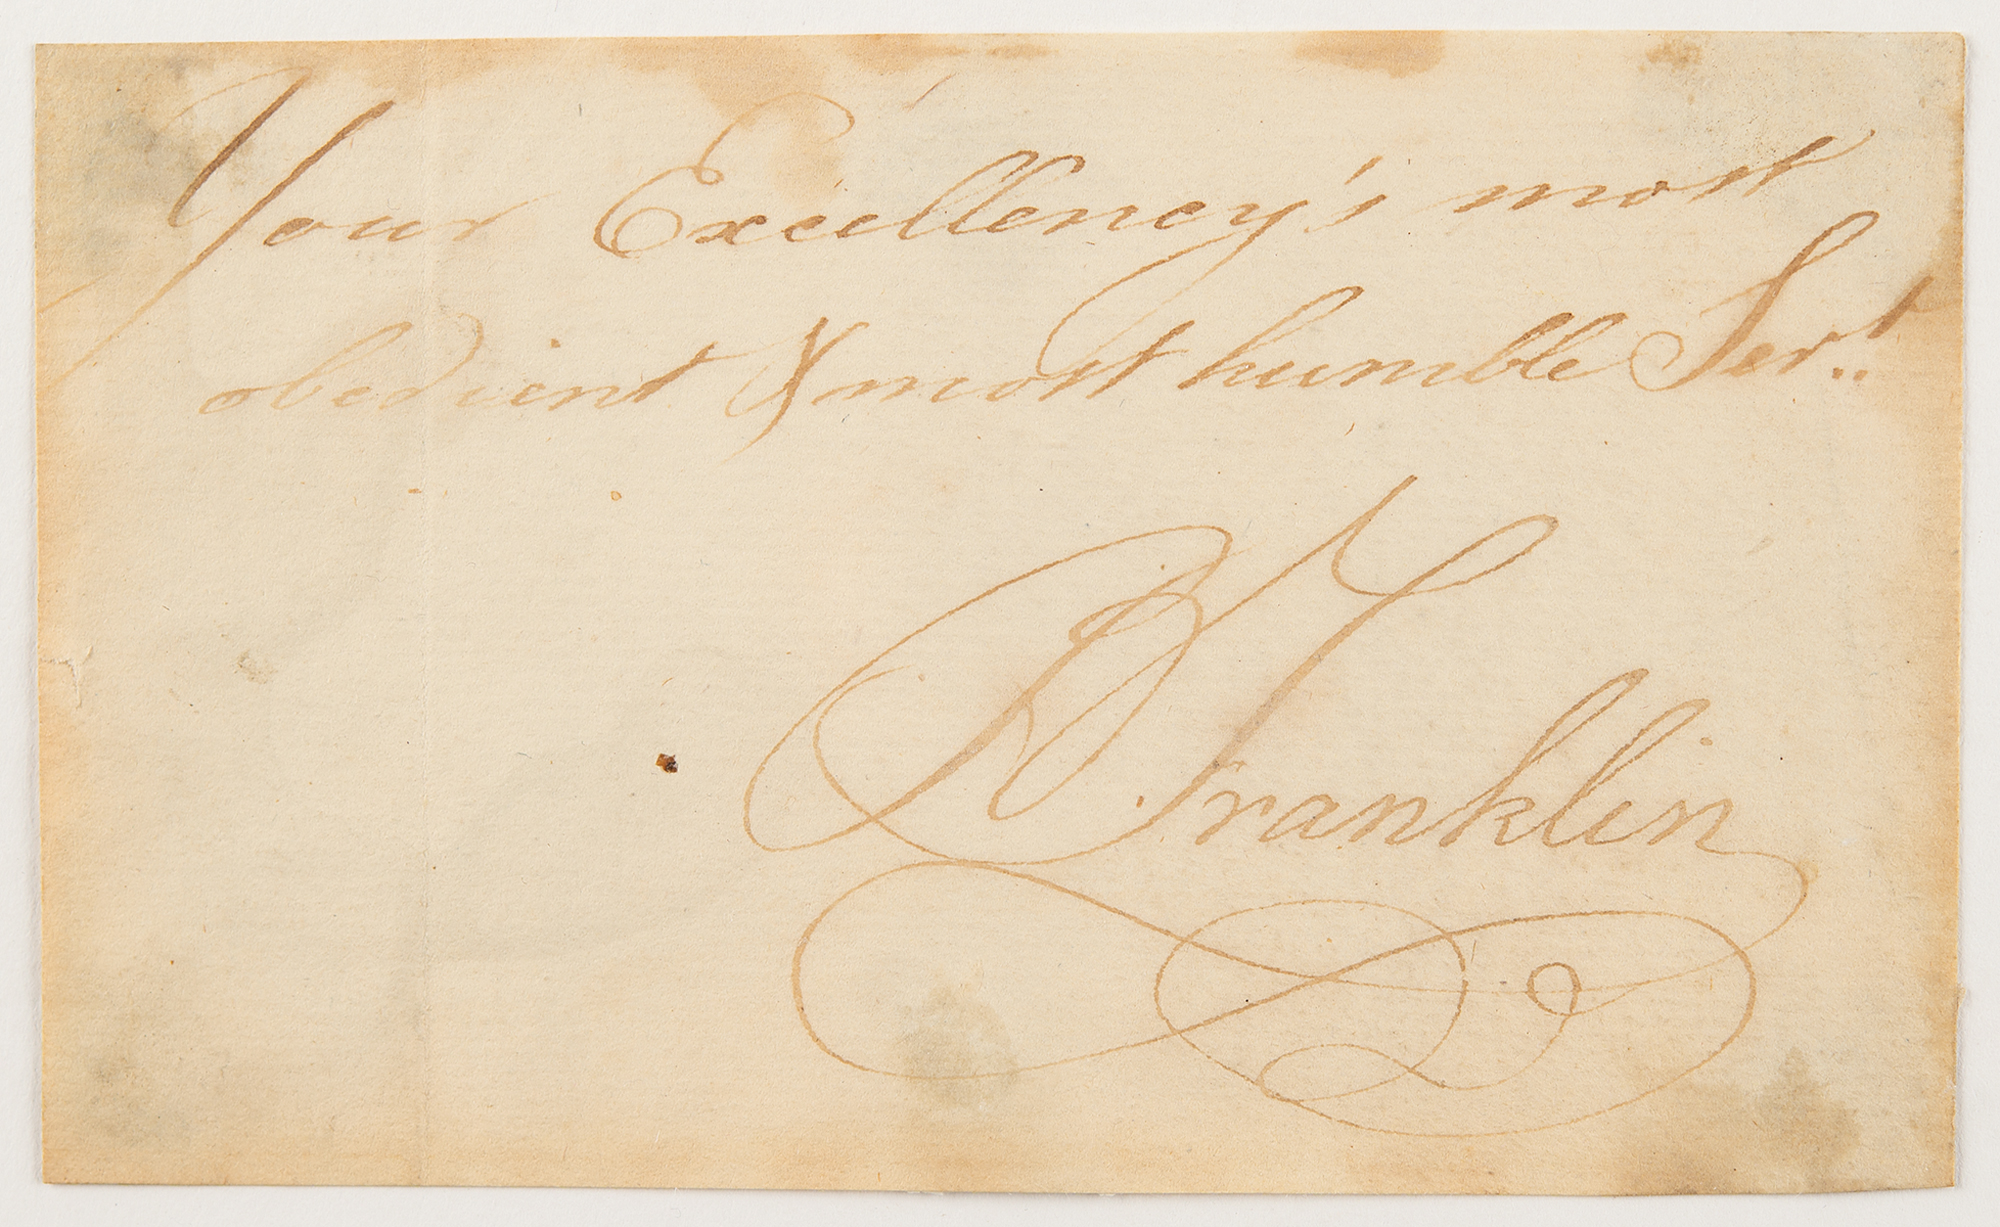 Your Excellency's most
obedient & most humble Servt.
B Franklin